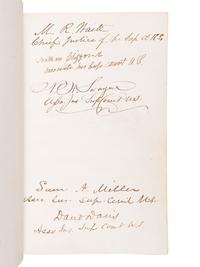 M. R. Waite
Chief Justice of the Sup Ct U.S.
Nathan Clifford
Associate Jus Sup Court U.S.
N. H. Swayne
Asso. Jus. Sup Court U.S.
Sam. F. Miller
Asso. Jus. Sup. Court U.S.
David Davis
Asso Jus. Sup Court U.S.